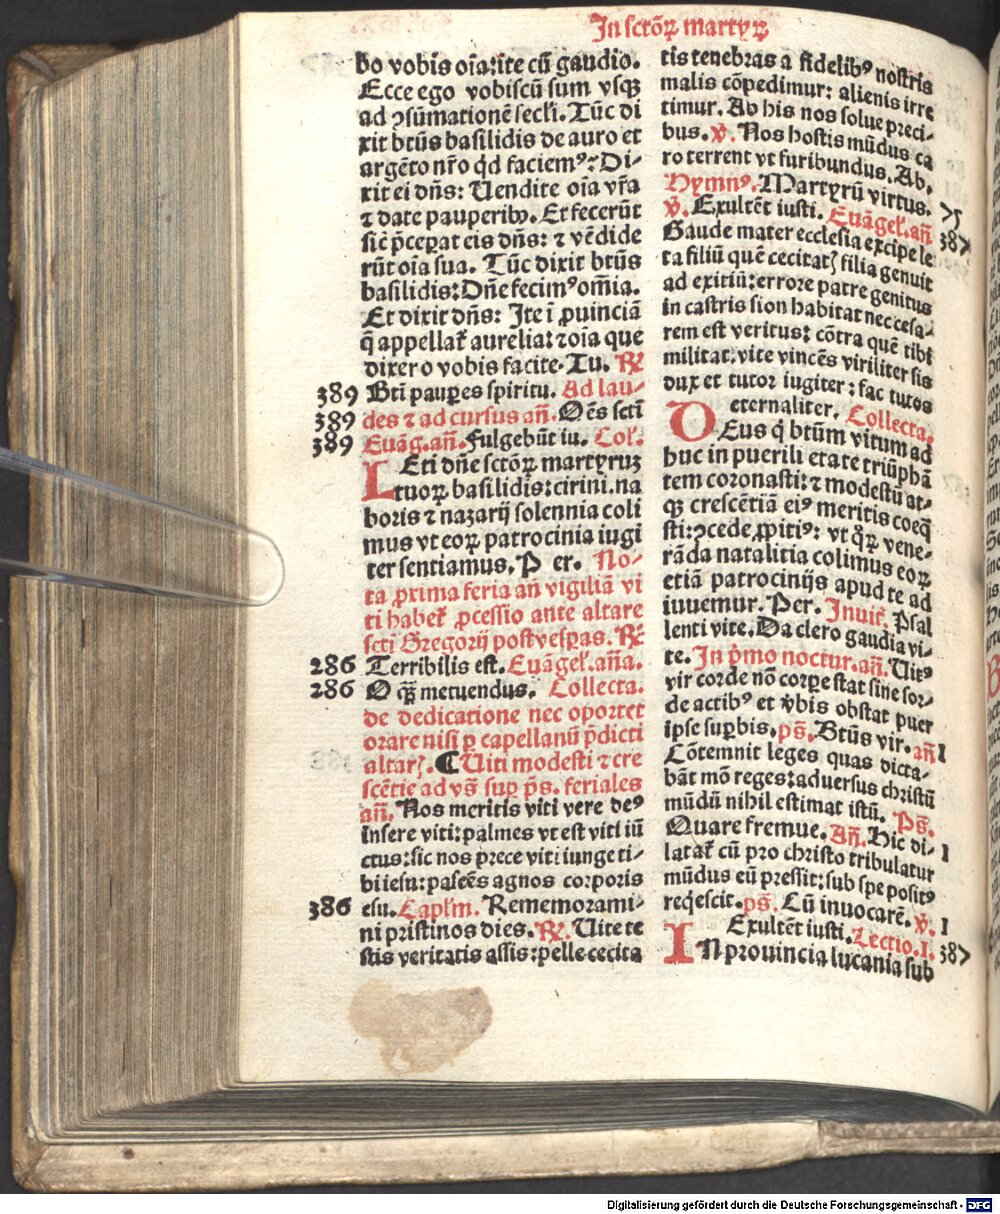 In sctõꝝ martyꝝ
bo vobis oĩa:ite cũ gaudio.
Ecce ego vobiscũ sum vsqꝫ
ad ↄsũmationẽ secłi. Tũc di
xit btũs basilidis de auro et
argẽto nr̃o qd̃ faciemꝰ? Di⸗
xit ei dñs: Uendite oĩa vr̃a
⁊ date pauperibꝰ. Et fecerũt
sic̃ p̃ceperat eis dñs: ⁊ vẽdide
rũt oĩa sua. Tũc dixit btũs
basilidis: Dñe fecimꝰ om̃ia.
Et dixit dñs: Ite ĩ ꝓuinciã
q̃ appellat᷒ aurelia: ⁊ oĩa que
dixero vobis facite. Tu. ℟
389 Bti pauꝑes spiritu. Ad lau⸗
389 des ⁊ ad cursus añ. Oẽs scti
389 Euãg. añ. Fulgebũt iu. Coł.
LEti dñe sctõꝝ martyruꝫ
tuoꝝ basilidis: cirini. na
boris ⁊ nazarij solennia coli
mus vt eoꝝ patrocinia iugi
ter sentiamus. Per. No⸗
ta ꝓxima feria añ vigiliã vi
ti habet᷒ ꝓcessio ante altare
scti Gregorij post vesꝑas. ℟
286 Terribilis est. Euãgeł. aña.
286 O qꝫ metuendus. Collecta.
de dedicatione nec oportet
orare nisi ꝑ capellanũ p̃dicti
altarꝭ. ¶ Uiti modesti ⁊ cre
scẽtie ad vs̃ sup ps̃. feriales
añ. Nos meritis viti vere deꝰ
insere viti: palmes vt est viti iũ
ctus: sic nos prece viti iunge ti⸗
bi iesu: pascẽs agnos corporis
386 esu. Capłm. Rememorami⸗
ni pristinos dies. ℟. Uite te
stis veritatis assis: pelle cecita
tis tenebras a fidelibꝰ nostris
malis cõpedimur: alienis irre
timur. Ab his nos solue preci⸗
bus. ℣. Nos hostis mũdus ca
ro terrent vt furibundus. Ab.
Hymnꝰ. Martyrũ virtus.
℣. Exultẽt iusti. Euãgeł. añ 387
Gaude mater ecclesia excipe le
ta filiũ quẽ cecitatꝭ filia genuit
ad exitiũ: errore patre genitus
in castris sion habitat nec cesa⸗
rem est veritus: cõtra quẽ tibi
militat: vite vincẽs viriliter sis
dux et tutor iugiter: fac tutos
eternaliter. Collecta.
DEus q̃ btũm vitum ad
huc in puerili etate triũphã
tem coronasti: ⁊ modestũ at⸗
qꝫ crescẽtiã eiꝰ meritis coeq̃
sti: ↄcede ꝓpitiꝰ: vt qꝛꝝ vene⸗
rãda natalitia colimus eoꝝ
etiã patrocinijs apud te ad
iuuemur. Per. Inuit᷒. Psal
lenti vite. Da clero gaudia vi⸗
te. In p̃mo noctur. añ. Uitꝰ
vir corde nõ corpe stat sine sor⸗
de actibꝰ et v̾bis obstat puer
ipse suꝑbis. ps̃. Btũs vir. añ 1
Cõtemnit leges quas dicta⸗
bãt mõ reges: aduersus christũ
mũdũ nihil estimat istũ. Ps̃.
Quare fremue. Añ. Hic di⸗ 1
latat᷒ cũ pro christo tribulatur
mũdus eũ pressit: sub spe positꝰ
reqescit. ps̃. Cũ inuocarẽ. ℣. 1
Exultẽt iusti. Lectio. I. 387
IN prouincia lucania sub
Digitalisierung gefördert durch die Deutsche Forschungsgemeinschaft - DFG